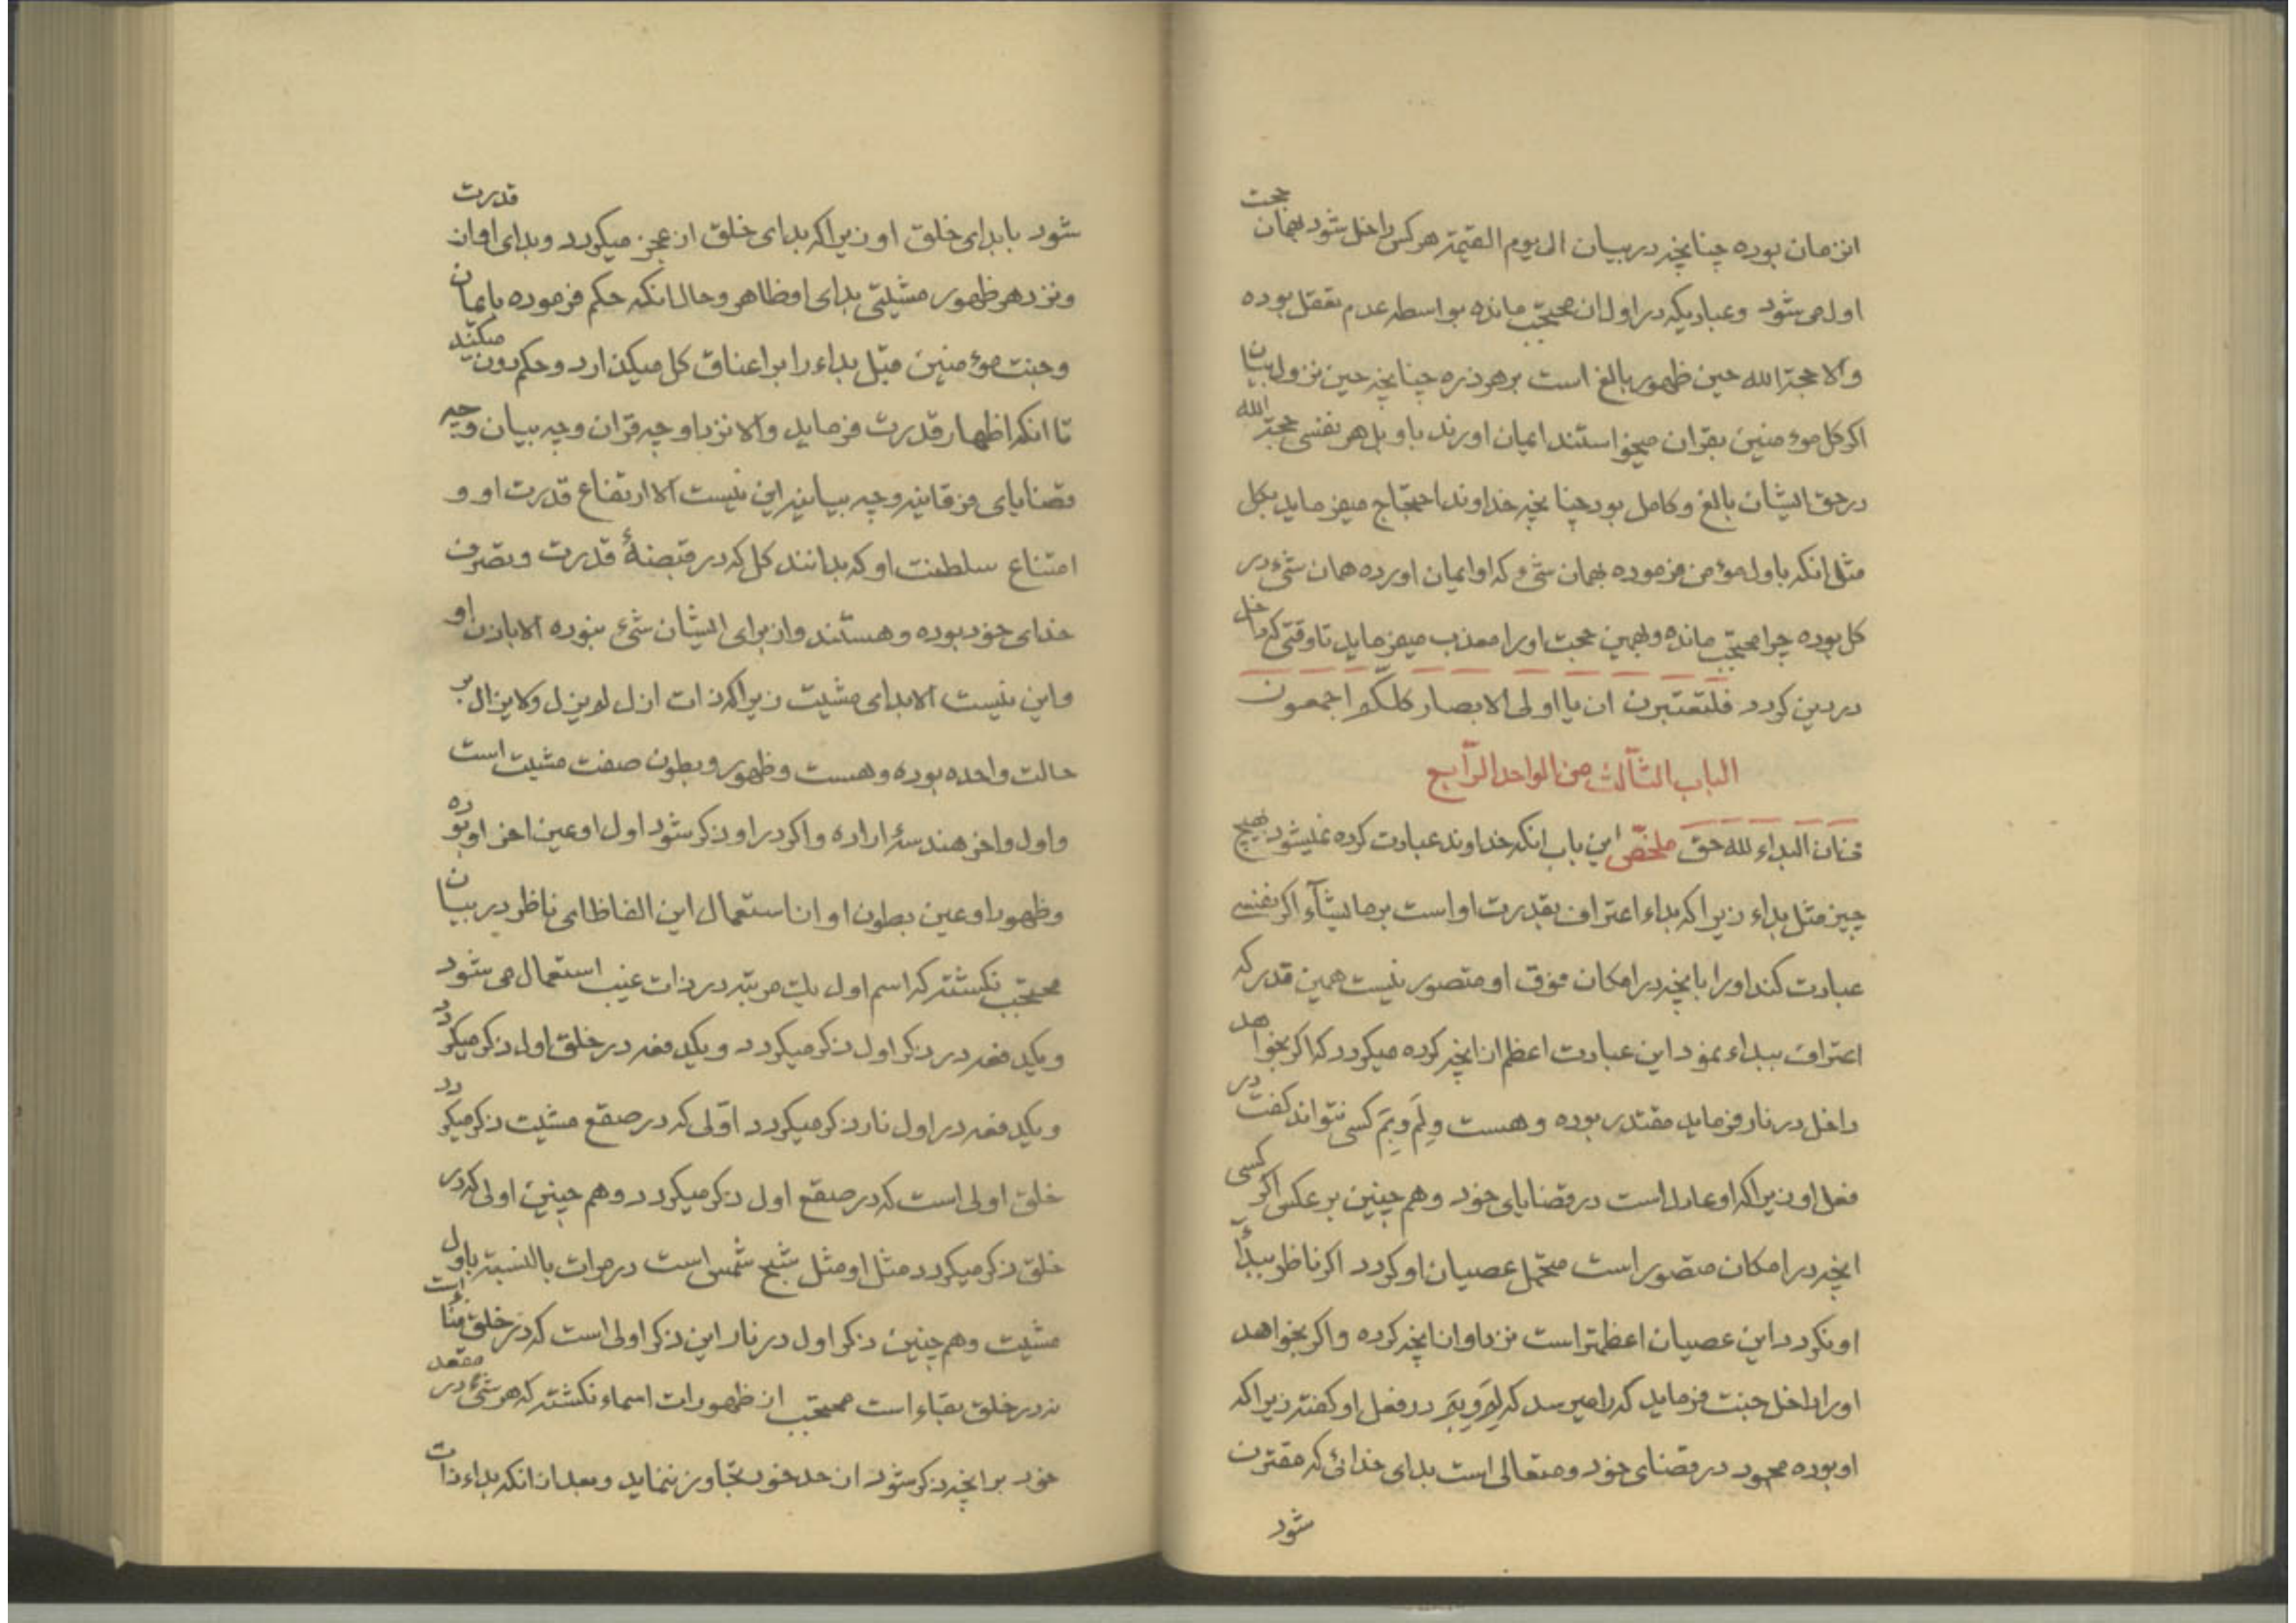 انزمان بوده چنانچه در بیان الی یوم القیمة هر کس داخل شود بهمان حجت
اول می شود وعبادیکه در اول ان محتجب مانده بواسطه عدم تعقل بوده
والا حجة الله حین ظهور بالغ است بر هر ذره چنانچه حین نزول بیان
اکر کل موءمنین بقران میخواستند ایمان اورند باو بل هر نفسی حجة الله
در حق ایشان بالغ وکامل بود چنانچه خداوند احتجاج میفرماید بکل
مثل انکه باول موءمن فرموده بهمان شیء که او ایمان اورده همان شیء در
کل بوده چرا محتجب مانده وبهمین حجت اورا معذب میفرماید تا وقتی که داخل
در دین کردد فلتعتبرن ان یا اولی الابصار کلّکم اجمعون
الباب الثّالث من الواحد الرّابع
فی ان البداء لله حق ملخّص این باب انکه خداوند عبادت کرده نمیشود بهیچ
چیز مثل بداء زیرا که بداء اعتراف بقدرت او است بر ما یشآء اکر نفسی
عبادت کند اورا بانچه در امکان فوق او متصور نیست همین قدر که
اعتراف ببداء نمود این عبادت اعظم از انچه کرده میکردد که اکر بخواهد
داخل در نار فرماید مقتدر بوده وهست ولِمَ وبِمَ کسی نتواند کفت در
فعل او زیرا که او عادل است در قضایای خود وهم چنین بر عکس اکر کسی
انچه در امکان متصور است متحمل عصیان او کردد اکر ناظر ببدآء
او نکردد این عصیان اعظمتر است نزد او از انچه کرده واکر بخواهد
اورا داخل جنت فرماید که را میرسد که لِمَ وبِمَ در فعل او کفته زیرا که
او بوده محمود در قضای خود ومتعالی است بدای خدائی که مقترن
شود
شود با بدای خلق او زیرا که بدای خلق از عجز میکردد وبدای او از قدرت
ونزد هر ظهور مشیّتی بدای او ظاهر وحال انکه حکم فرموده بایمان
وجنت موءمنین قبل بداء را بر اعناق کل میکذارد وحکم دون میکند
تا انکه اظهار قدرت فرماید والا نزد او چه قران وچه بیان وچه
قضایای فرقانیه وچه بیانیه این نیست الا ارتفاع قدرت او و
امتناع سلطنت او که بدانند کل که در قبضهٔ قدرت وتصرف
خدای خود بوده وهستند واز برای ایشان شیء نبوده الا باذن او
واین نیست الا بدای مشیت زیرا که ذات ازل لم یزل ولا یزال بر
حالت واحده بوده وهست وظهور وبطون صفت مشیت است
واول واخر هندسهٔ اراده واکر در او ذکر شود اول او عین اخر او بوده
وظهور او عین بطون او از استعمال این الفاظ ای ناظر در بیان
محتجب نکشته که اسم اول یک مرتبه در ذات غیب استعمال می شود
ویکدفعه در ذکر اول ذکر میکردد ویکدفعه در خلق اول ذکر میکردد
ویکدفعه در اول نار ذکر میکردد اوّلی که در صقع مشیت ذکر میکردد
خلق اولی است که در صقع اول ذکر میکردد وهم چنین اولی که در
خلق ذکر میکردد مثل او مثل شبح شمس است در مرات بالنسبة باول
مشیت وهم چنین ذکر اول در نار این ذکر اولی است که در خلق فنا است
نه در خلق بقاء است محتجب از ظهورات اسماء نکشته که هر شیء در مقعد
خود بر انچه ذکر شود از حد خود تجاوز ننماید وبعد از انکه بداء ذات